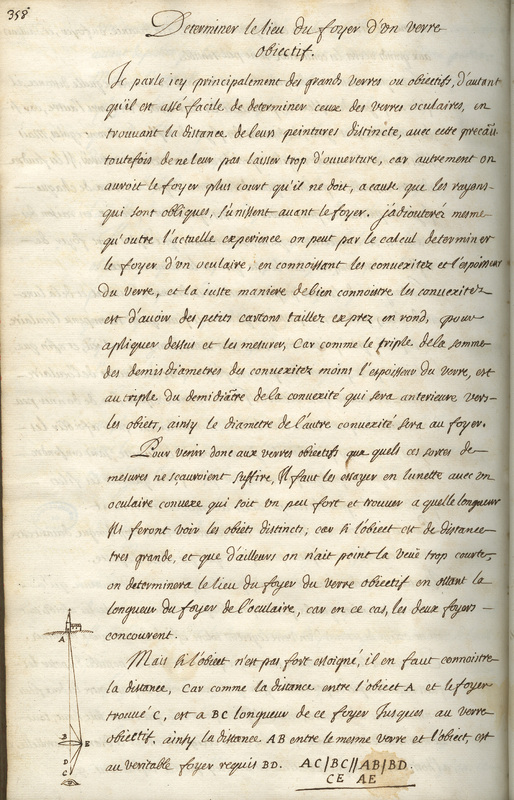 358
Determiner le lieu du foyer d'vn verre
obiectif.
Je parle icy principalement des grands verres ou obiectifs, d'autant
qu'il est assé facile de determiner ceux des verres oculaires, en
trouuant la distance de leurs peintures distincte, auec cette precaūn
toutefois de ne leur pas laisser trop d'ouuerture, car autrement on
auroit le foyer plus court qu'il ne doit, a cause que les rayons
qui sont obliques, s'unissent auant le foyer. j'adiouterái mesme
qu'outre l'actuelle experience on peut par le calcul determiner
le foyer d'vn oculaire, en connoissant les conuexitez et l'espoisseur
du verre, et la iuste maniere de bien connoistre les conuexitez
est d'auoir des petits cartons taillez exprez en rond, pour
apliquer dessus et les mesurer, Car comme le triple de la somme
des demis diametres des conuexitez moins l'espoisseur du verre, est
au triple du demidiātre de la conuexité qui sera anterieure vers
les obiets, ainsy le diametre de l'autre conuexité sera au foyer.
Pour venir donc aux verres obiectifs que quels ces sortes de
mesures ne sçauroient suffire, Il faut les essayer en lunette auec vn
oculaire conuexe qui soit vn peu fort et trouuer a quelle longueur
Ils feront voir les obiets distincts, car si l'obiect est de distance
tres grande, et que d'ailleurs on n'ait point la veüe trop courte,
on determinera le lieu du foyer du verre obiectif en ostant la
longueur du foyer de l'oculaire, car en ce cas, les deux foyers
concourent.
Mais si l'obiect n'est pas fort esloigné, il en faut connoistre
la distance, Car comme la distance entre l'obiect A et le foyer
trouué C, est a BC longueur de ce foyer Jusques au verre
obiectif, ainsy la distance AB entre le mesme verre et l'obiect, est
au veritable foyer requis BD. AC/BC//AB/BD.
CE AE
A
B E
D
C